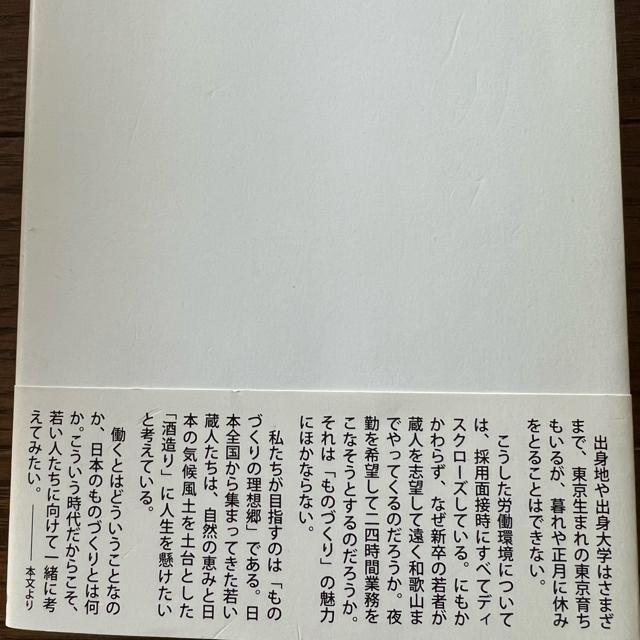 出身地や出身大学はさまざ
まで、東京生まれの東京育ち
もいるが、暮れや正月に休み
をとることはできない。
こうした労働環境について
は、採用面接時にすべてディ
スクローズしている。にもか
かわらず、なぜ新卒の若者が
蔵人を志望して遠く和歌山ま
でやってくるのだろうか。夜
勤を希望して二四時間業務を
こなそうとするのだろうか。
それは「ものづくり」の魅力
にほかならない。
私たちが目指すのは「もの
づくりの理想郷」である。日
本全国から集まってきた若い
蔵人たちは、自然の恵みと日
本の気候風土を土台とした
「酒造り」に人生を懸けたい
と考えている。
働くとはどういうことなの
か、日本のものづくりとは何
か。こういう時代だからこそ、
若い人たちに向けて一緒に考
えてみたい。――本文より